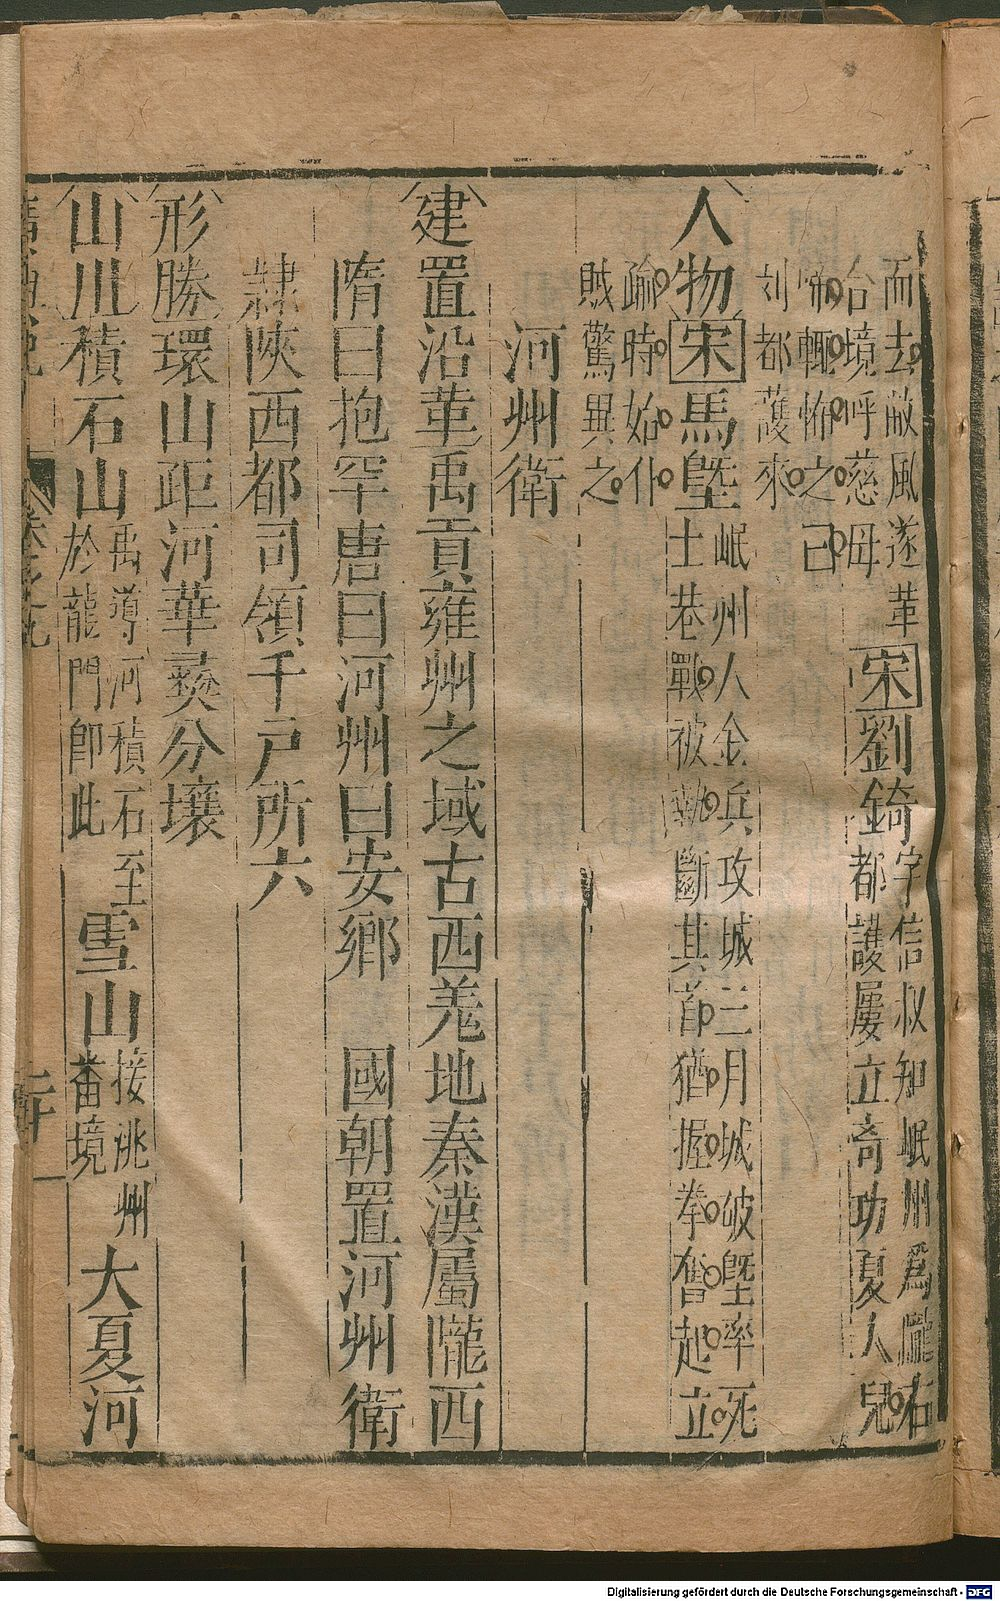 而去敝風遂革宋劉錡字信叔知岷州爲隴右
台境呼慈母都護屢立奇功夏人兒
啼輒怖之曰
刘都護來
人物宋馬塈岷州人金兵攻城三月城破塈率死
士巷戰被執斷其首猶握拳奮起立
踰時始仆
賊驚異之
河州衛
建置沿革禹貢雍州之域古西羗地秦漢屬隴西
隋曰抱罕唐曰河州曰安鄉 國朝置河州衛
隸陜西都司領千户所六
形勝環山距河華彛分壤
山川積石山禹導河積石至於龍門卽此雪山接洮州蕃境大夏河
二十一
Digitalisierung gefördert durch die Deutsche Forschungsgemeinschaft - DFG